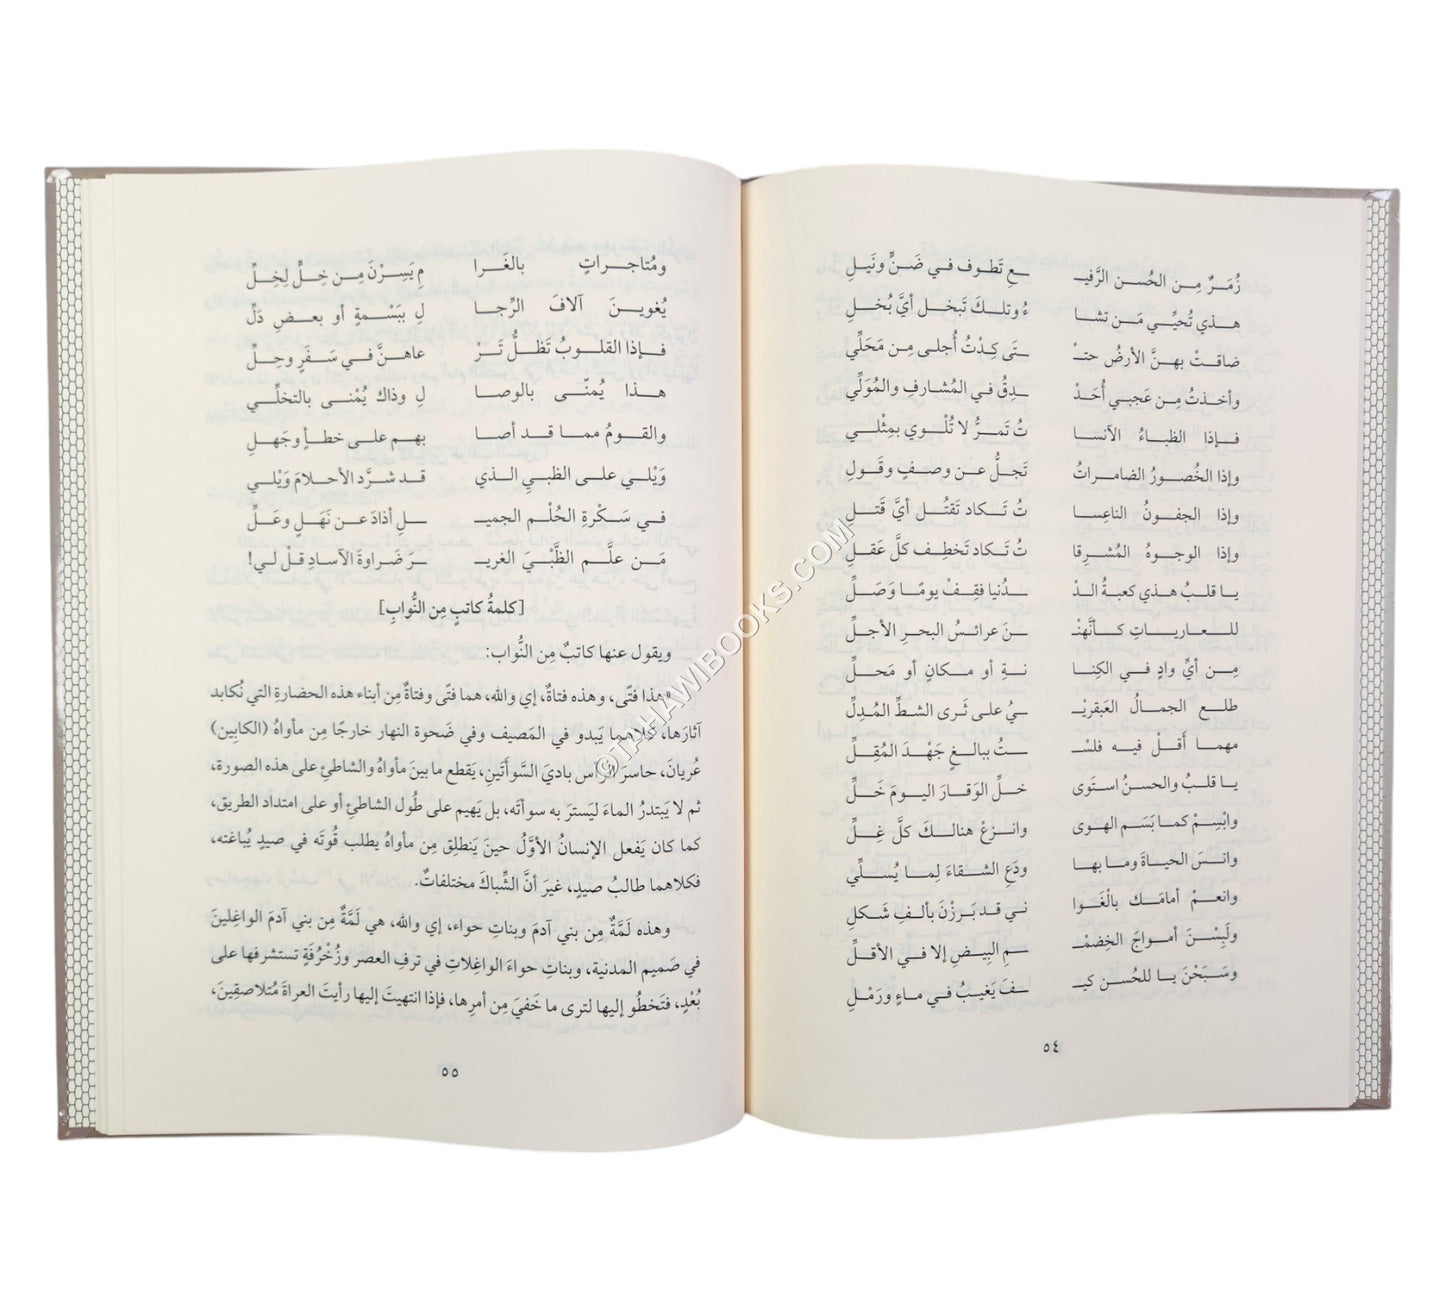 زُمَرٌ مِن الحُسن الرَّفيـ ـعِ تَطوف في ضَنٍّ ونَيلِ
هذي تُحيِّي مَن تشا ءُ وتلكَ تَبخل أيَّ بُخلِ
ضاقتْ بهنَّ الأرضُ حتـْ ـتَى كِدْتُ أُجلى مِن مَحَلِّي
وأخذتُ مِن عَجبي أُحَدْ ـدِقُ في المُشارفِ والمُوَلِّي
فإذا الظباءُ الآنسا تُ تَمرُّ لا تُلْوي بمِثْلي
وإذا الخُصورُ الضامراتُ تَجلُّ عن وصفٍ وقَولِ
وإذا الجفونُ الناعِسا تُ تَكاد تَقتُل أيَّ قَتلِ
وإذا الوجوهُ المُشرِقا تُ تَكاد تَخطِف كلَّ عَقلِ
يا قلبُ هذي كعبةُ الدْ ـدُنيا فقِفْ يومًا وَصَلِّ
للعارياتِ كأنَّهنْ ـنَ عرائسُ البحرِ الأجلِّ
مِن أيِّ وادٍ في الكِنا نةِ أو مكانٍ أو مَحلِّ
طلع الجمالُ العبقريْـ ـيُ على ثَرى الشطِّ المُدِلِّ
مهما أَقلْ فيه فلسْـ ـتُ ببالغٍ جَهْدَ المُقِلِّ
يا قلبُ والحسنُ استَوى خلِّ الوَقارَ اليومَ خَلِّ
وابْسِمْ كما بَسَم الهوى وانزعْ هنالكَ كلَّ غِلِّ
وانسَ الحياةَ وما بها ودَعِ الشقاءَ لِما يُسلِّي
وانعمْ أمامَك بالْغَوا ني قد بَرزْنَ بألفِ شَكلِ
ولَبِسْنَ أمواجَ الخِضمْـ ـمِ البِيضِ إلا في الأقلِّ
وسَبَحْنَ يا للحُسن كيـ ـفَ يَغيبُ في ماءٍ ورَمْلِ
٥٤
ومُتاجراتٍ بالغَرا مِ يَسِرْنَ مِن خِلٍّ لِخِلِّ
يُغوينَ آلافَ الرِّجا لِ ببَسْمةٍ أو بعضِ دَلِّ
فإذا القلوبُ تَظلُّ تَرْ عاهنَّ في سَفَرٍ وحِلِّ
هذا يُمنّى بالوصا لِ وذاك يُمْنى بالتخلِّي
والقومُ مما قد أصا بهم على خطأٍ وجَهلِ
وَيْلي على الظبيِ الذي قد شرَّد الأحلامَ وَيْلي
في سَكْرةِ الحُلْمِ الجميـ ـلِ أذادَ عن نَهَلٍ وعَلِّ
مَن علَّم الظَّبْيَ الغريـ ـرَ ضَراوةَ الآسادِ قلْ لي!
[كلمةُ كاتبٍ مِن النُّوابِ]
ويقول عنها كاتبٌ مِن النُّواب:
«هذا فتًى، وهذه فتاةٌ، إي والله، هما فتًى وفتاةٌ مِن أبناء هذه الحضارةِ التي نُكابد
آثارَها، كلاهما يَبدو في المَصيف وفي ضَحوة النهار خارجًا مِن مأواهُ (الكابِين)
عُريانَ، حاسرَ الرأس باديَ السَّوأَتَينِ، يَقطع ما بينَ مأواهُ والشاطئِ على هذه الصورة،
ثم لا يَبتدرُ الماءَ ليَسترَ به سوأتَه، بل يَهيم على طُول الشاطئِ أو على امتداد الطريق،
كما كان يَفعل الإنسانُ الأوَّلُ حينَ يَنطلِق مِن مأواهُ يطلب قُوتَه في صيدٍ يُباغته،
فكلاهما طالبُ صيدٍ، غيرَ أنَّ الشِّباكَ مختلفاتٌ.
وهذه لَمَّةٌ مِن بني آدمَ وبناتِ حواء، إي والله، هي لَمَّةٌ مِن بني آدمَ الواغِلينَ
في صَميم المدنية، وبناتِ حواءَ الواغِلاتِ في ترفِ العصر وزُخْرُفَةٍ تستشرفها على
بُعْدٍ، فتَخطُو إليها لترى ما خَفيَ مِن أمرِها، فإذا انتهيتَ إليها رأيتَ العراةَ مُتلاصِقِينَ،
٥٥
©TAHAWIBOOKS.COM